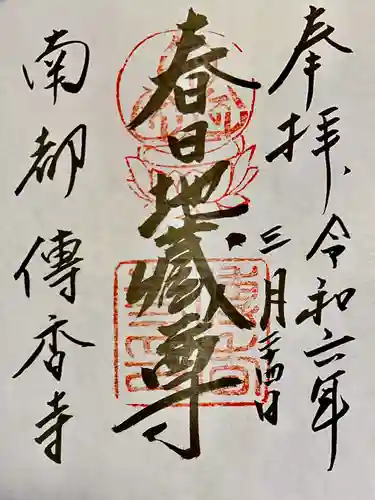 奉拝
令和六年
三月二十四日
春日地蔵尊
南都傳香寺